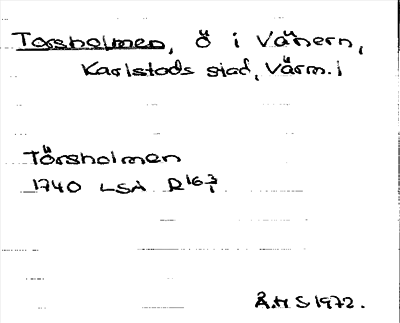 Torsholmen, ö i Vänern,
Karlstads stad, Värm. l
Törsholmen
1740 LSA R16 3/1
Å.H S 1972.